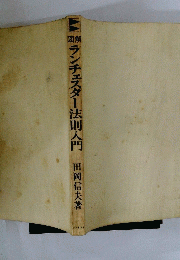 図解
ランチェスター法則入門
田岡信夫著